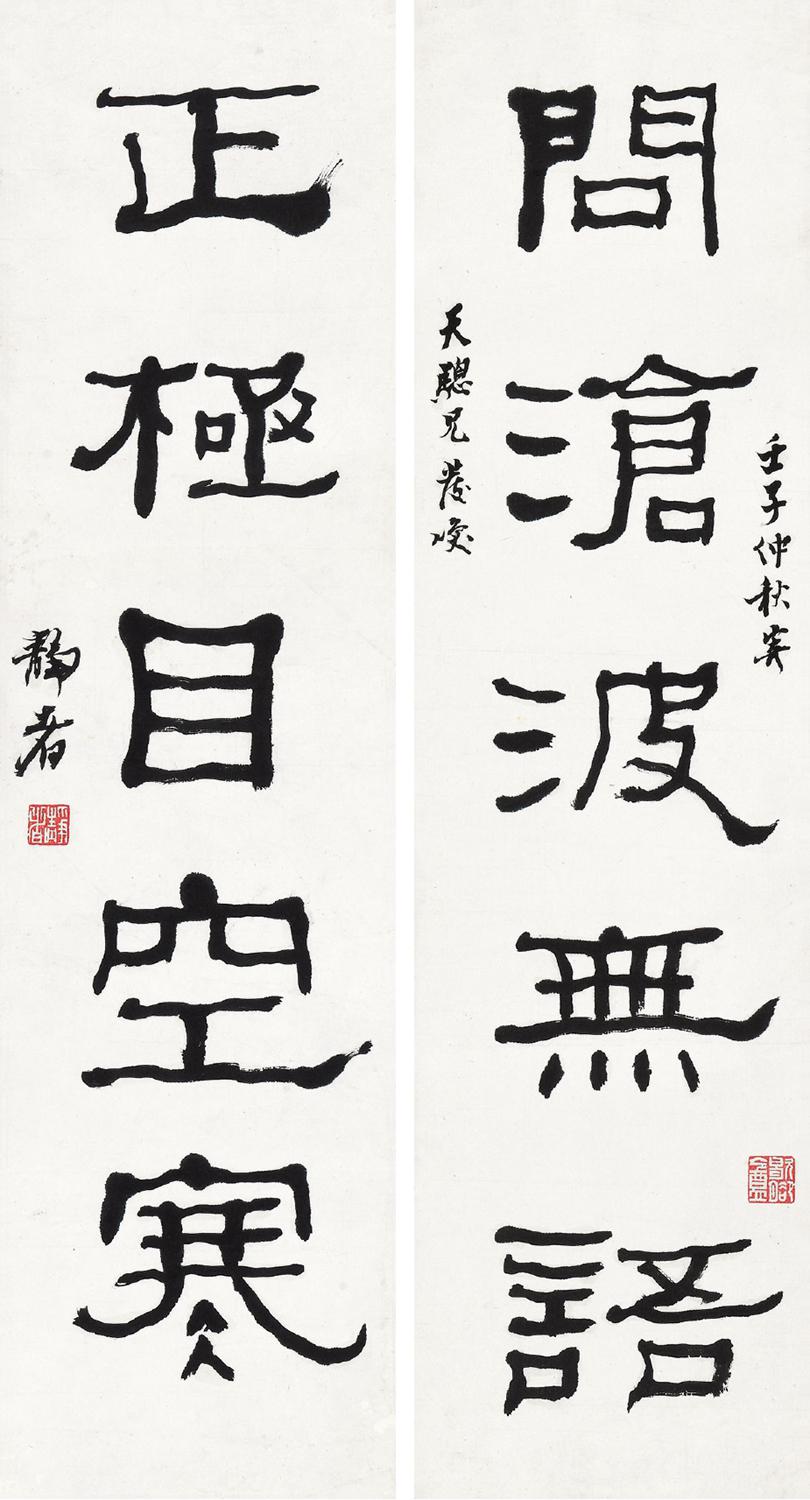 壬子仲秋寅
問滄波無語
天驄兄發喚
正極目空寒
靜者